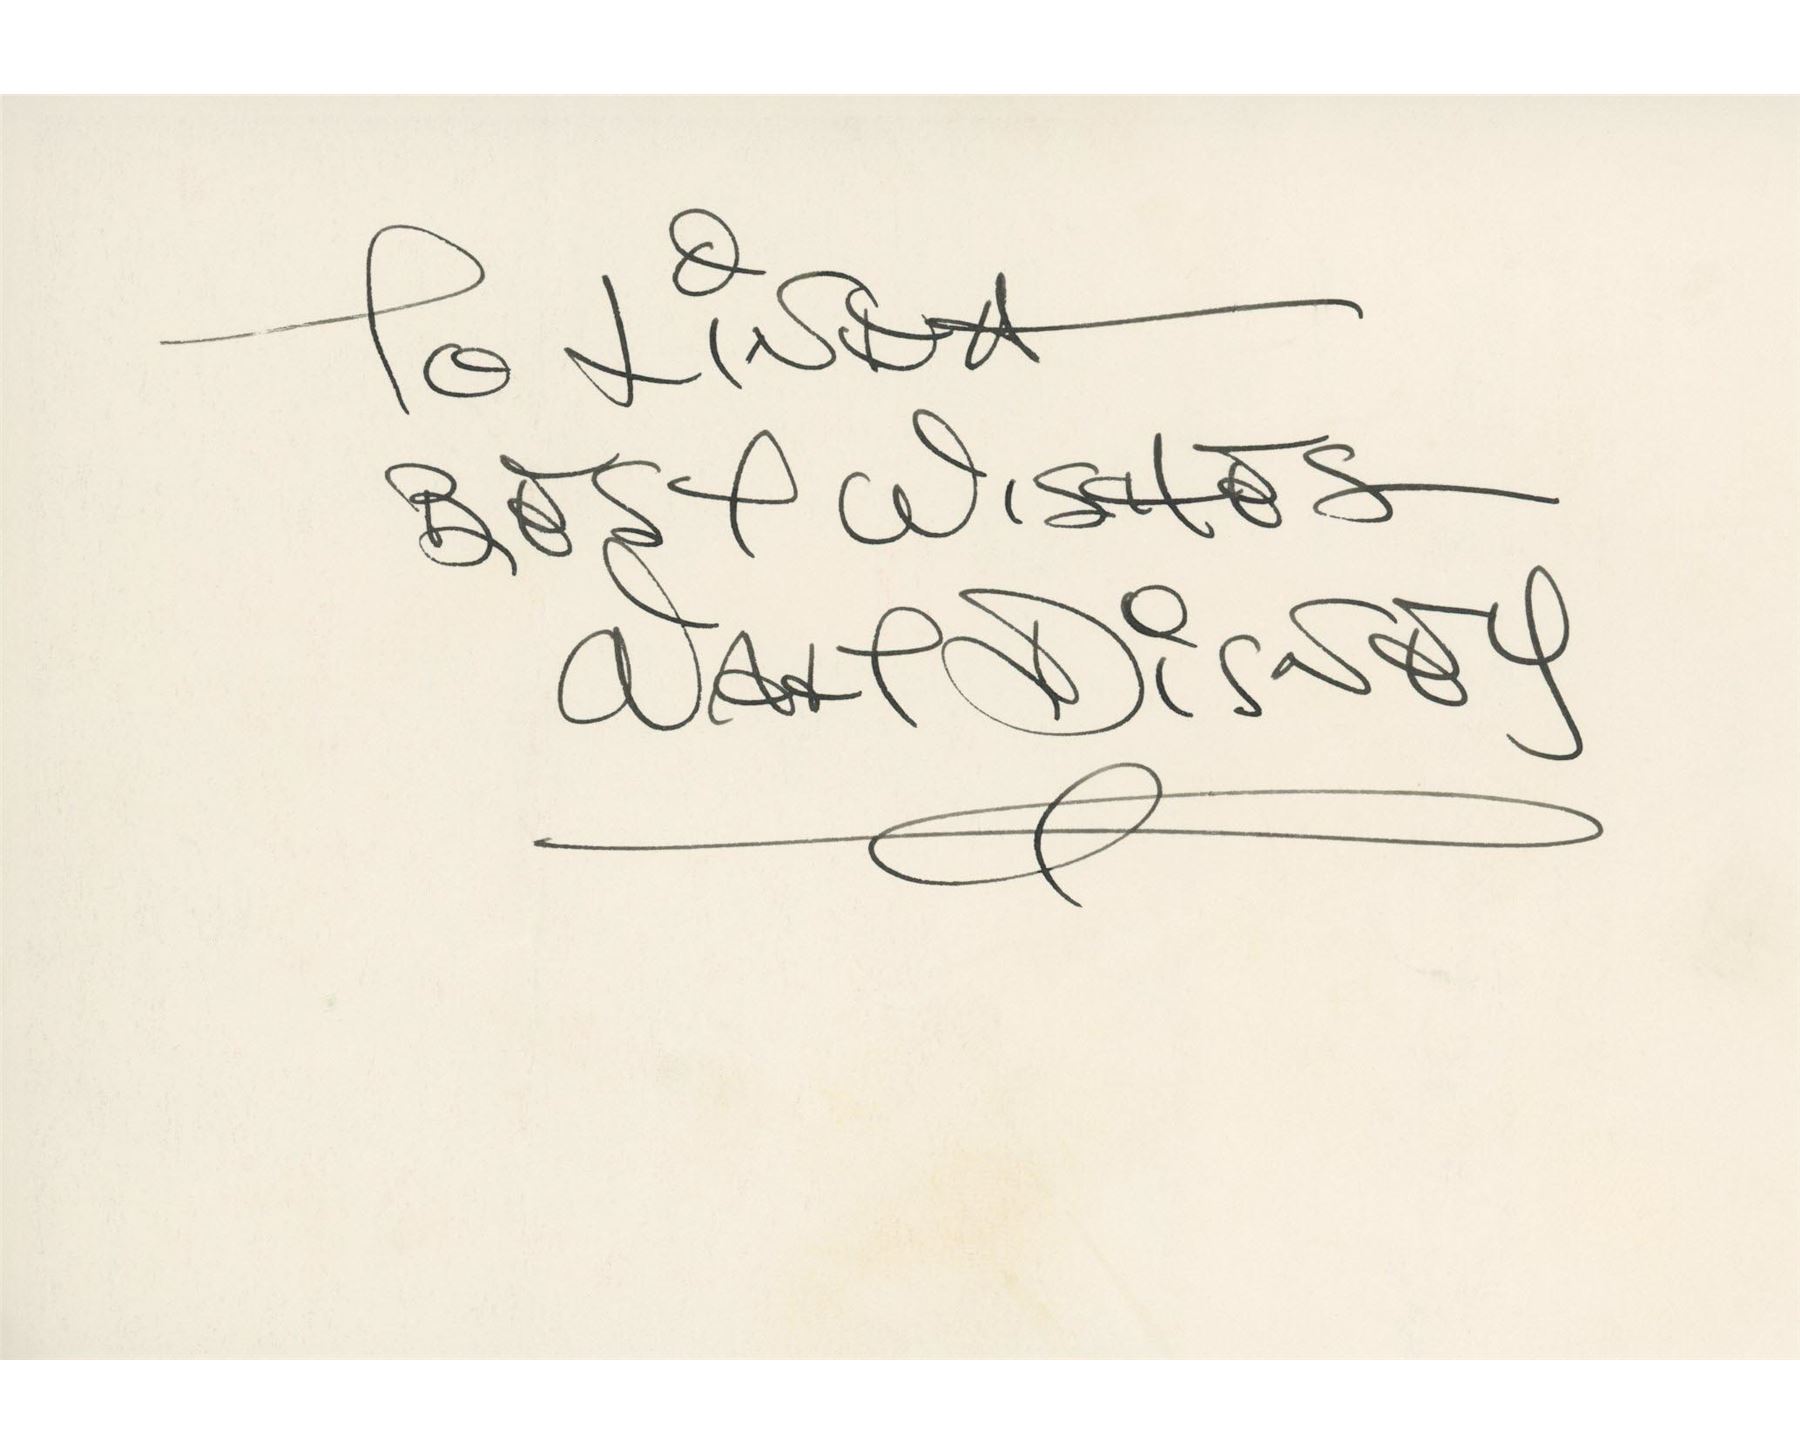 To Linda
Best Wishes
Walt Disney